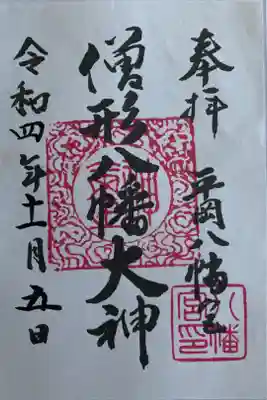 奉拝
平岡八幡宮
僧形八幡大神
令和四年十一月五日
八幡
宮印